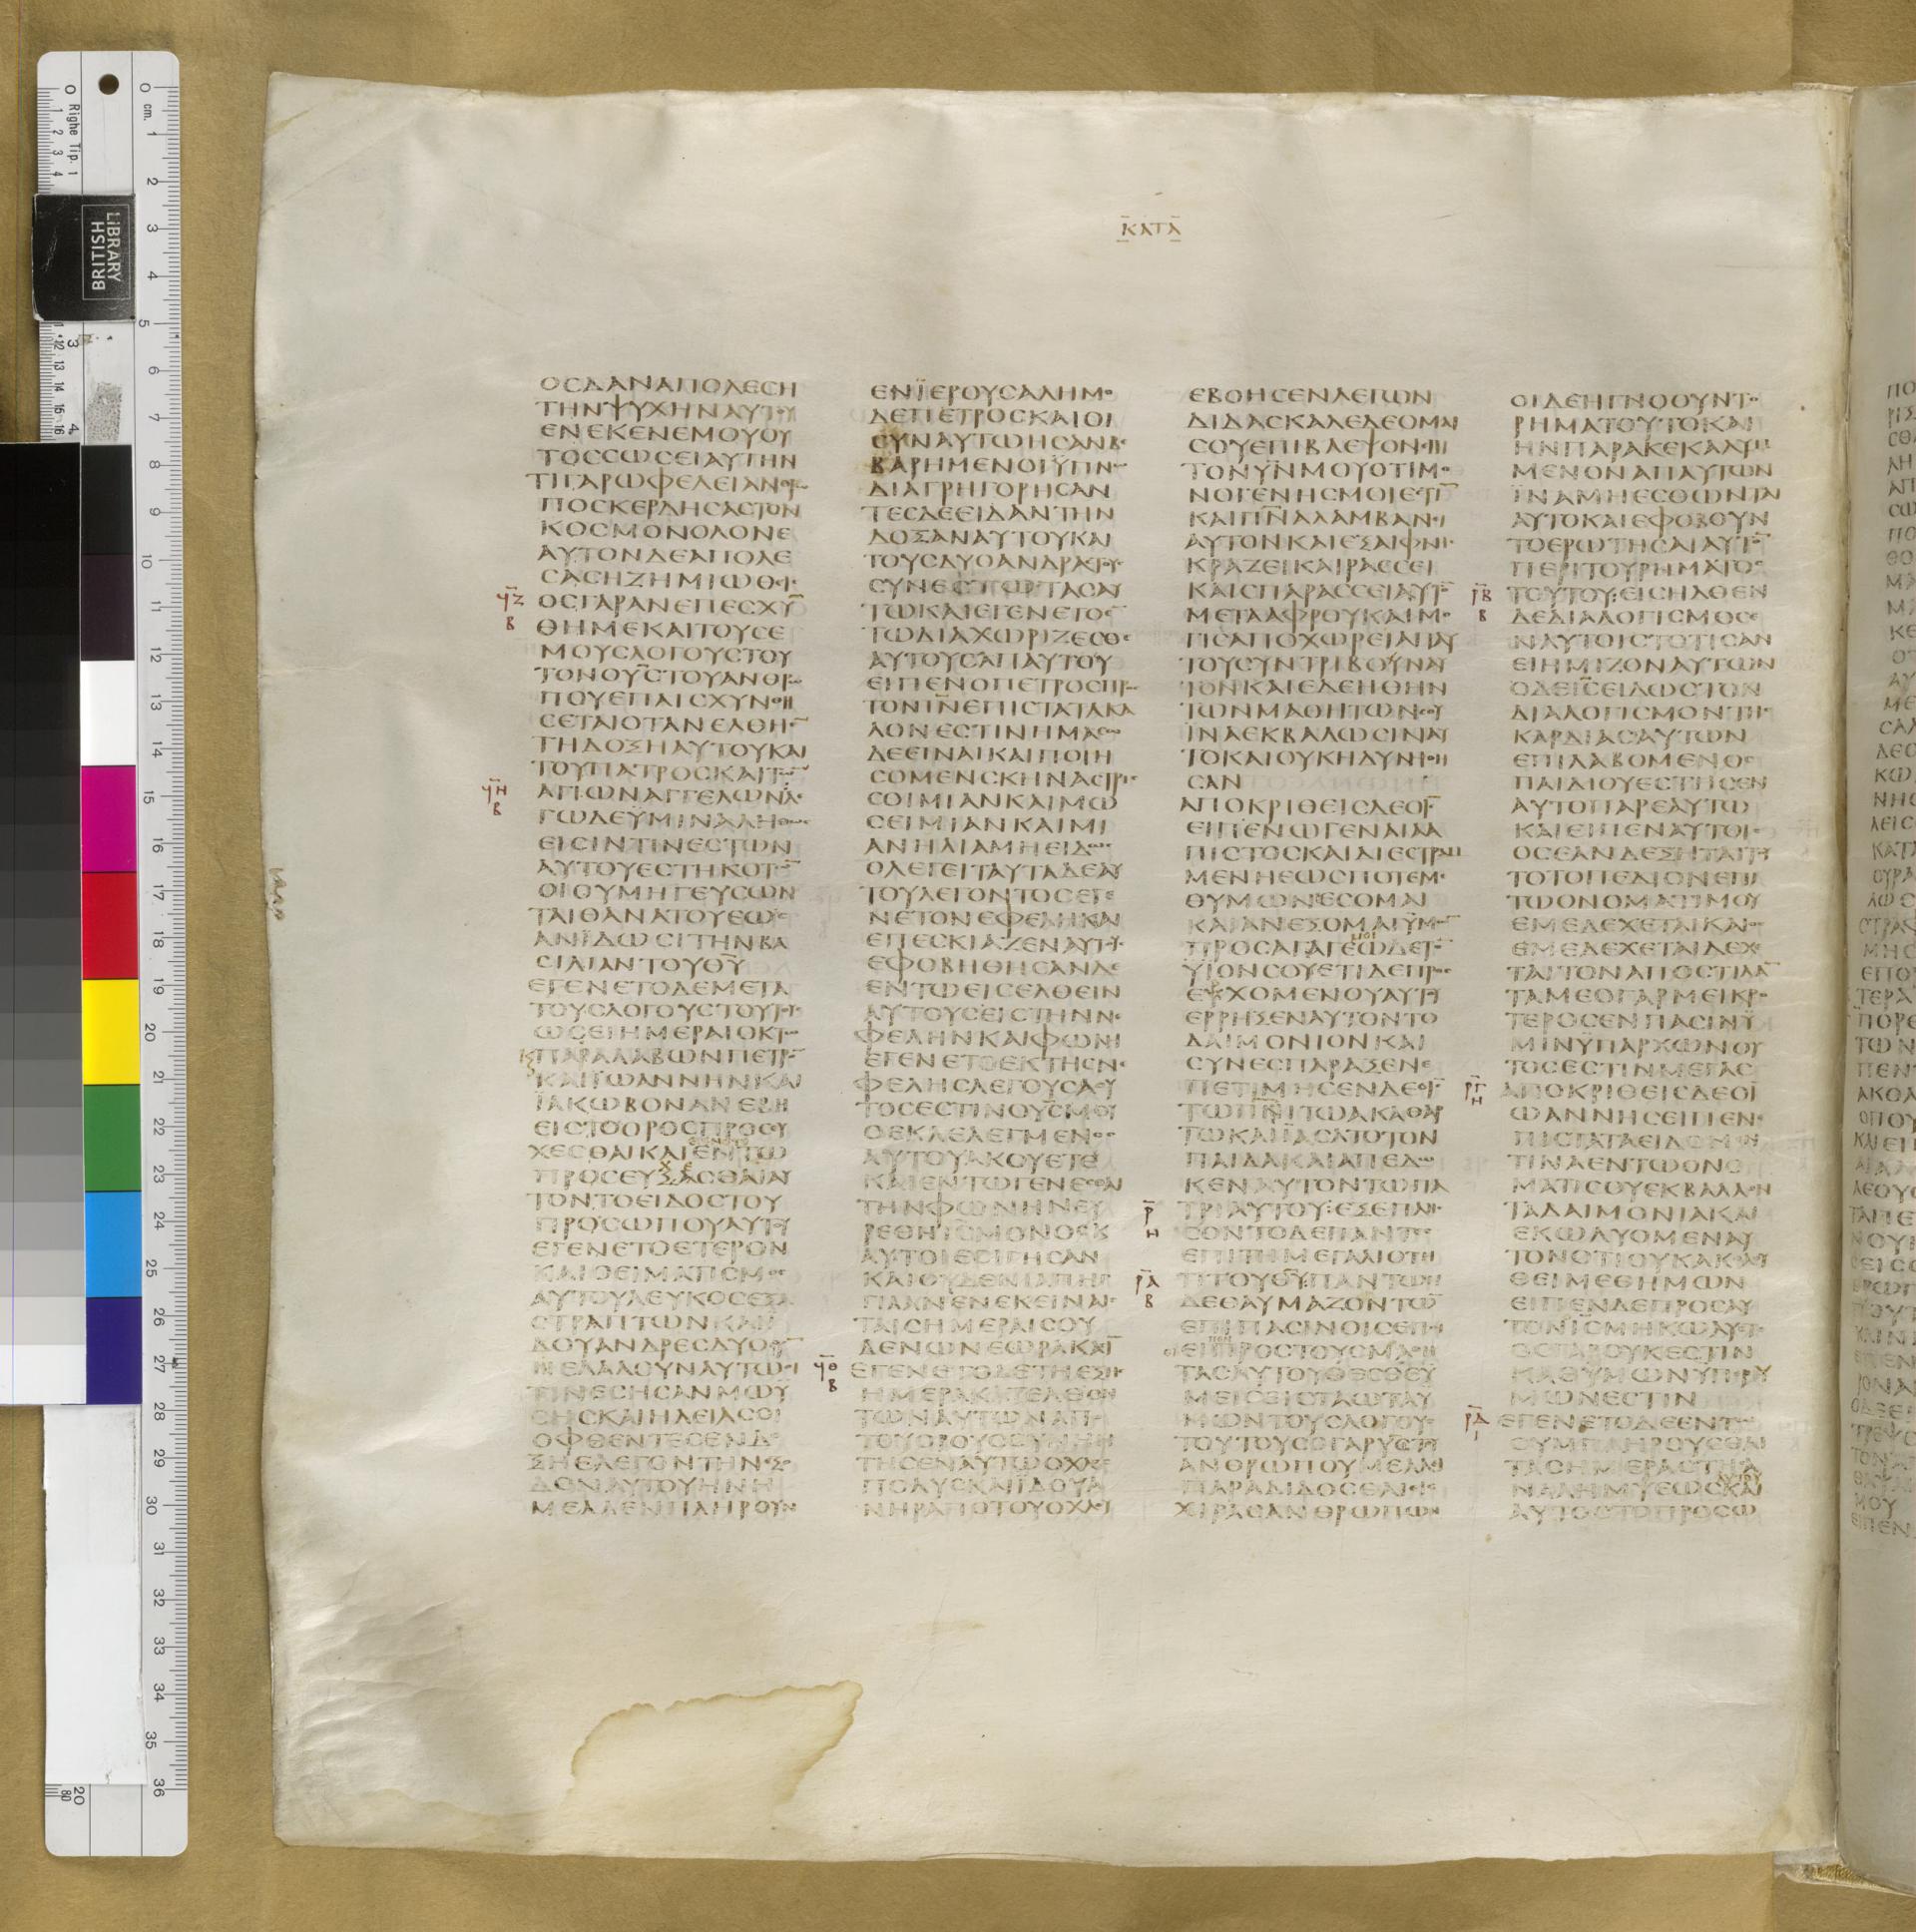 ΚΑΤΑ
ΟϹΔΑΝΑΠΟΛΕϹΗ
ΤΗΝΨΥΧΗΝΑΥΤΟΥ
ΕΝΕΚΕΝΕΜΟΥΟΥ
ΤΟϹϹΩϹΕΙΑΥΤΗΝ
ΤΙΓΑΡΩΦΕΛΕΙΑΝΟΡΩ
ΠΟϹΚΕΡΔΗϹΑϹΤΟΝ
ΚΟϹΜΟΝΟΛΟΝΕ
ΑΥΤΟΝΔΕΑΠΟΛΕ
ϹΑϹΗΖΗΜΙΩΘΙϹ
ϥΖ Β
ΟϹΓΑΡΑΝΕΠΕϹΧΥ̅
ΘΗΜΕΚΑΙΤΟΥϹΕ
ΜΟΥϹΛΟΓΟΥϹΤΟΥ
ΤΟΝΟΥ̅Ϲ̅ΤΟΥΑΝΘΡΩ
ΠΟΥΕΠΑΙϹΧΥΝΘΗ
ϹΕΤΑΙΟΤΑΝΕΛΘΗΕ̅
ΤΗΔΟΞΗΑΥΤΟΥΚΑΙ
ΤΟΥΠΑΤΡΟϹΚΑΙΤΩ̅
ϥΗ Β
ΑΓΙΩΝΑΓΓΕΛΩΝΛΕ
ΓΩΔΕΫΜΙΝΑΛΗΘΩϹ
ΕΙϹΙΝΤΙΝΕϹΤΩΝ
ΑΥΤΟΥΕϹΤΗΚΟΤΩ̅
ΟΙΟΥΜΗΓΕΥϹΩΝ
ΤΑΙΘΑΝΑΤΟΥΕΩϹ
ΑΝΪΔΩϹΙΤΗΝΒΑ
ϹΙΛΙΑΝΤΟΥΘ̅Υ̅
ΕΓΕΝΕΤΟΔΕΜΕΤΑ
ΤΟΥϹΛΟΓΟΥϹΤΟΥΤΟΥϹ
ΩϹΕΙΗΜΕΡΑΙΟΚΤΩ
ΠΑΡΑΛΑΒΩΝΠΕΤΡΟ̅
ΚΑΙΪΩΑΝΝΗΝΚΑΙ
ΪΑΚΩΒΟΝΑΝΕΒΗ
ΕΙϹΤΟΟΡΟϹΠΡΟϹΕΥ
ΧΕϹΘΑΙΚΑΙΕΝΤΩ
ΠΡΟϹΕΥΞΑϹΘΑΙΑΥ
ΤΟΝΤΟΕΙΔΟϹΤΟΥ
ΠΡΟϹΩΠΟΥΑΥΤΟΥ
ΕΓΕΝΕΤΟΕΤΕΡΟΝ
ΚΑΙΟΕΙΜΑΤΙϹΜΟϹ
ΑΥΤΟΥΛΕΥΚΟϹΕΞΑ
ϹΤΡΑΠΤΩΝΚΑΙΙ
ΔΟΥΑΝΔΡΕϹΔΥΟϹΥ̅
ΕΛΑΛΟΥΝΑΥΤΩΟΙ
ΤΙΝΕϹΗϹΑΝΜΩΫ
ϹΗϹΚΑΙΗΛΕΙΑϹΟΙ
ΟΦΘΕΝΤΕϹΕΝΔΟ
ΞΗΕΛΕΓΟΝΤΗΝΕΞΟ
ΔΟΝΑΥΤΟΥΗΝΗ
ΜΕΛΛΕΝΠΛΗΡΟΥΝ
ΕΝΪΕΡΟΥϹΑΛΗΜΟ
ΔΕΠΕΤΡΟϹΚΑΙΟΙ
ϹΥΝΑΥΤΩΗϹΑΝΒΕ
ΒΑΡΗΜΕΝΟΙΫΠΝΩ
ΔΙΑΓΡΗΓΟΡΗϹΑΝ
ΤΕϹΔΕΕΙΔΑΝΤΗΝ
ΔΟΞΑΝΑΥΤΟΥΚΑΙ
ΤΟΥϹΔΥΟΑΝΔΡΑϹΤΟΥϹ
ϹΥΝΕϹΤΩΤΑϹΑΥ
ΤΩΚΑΙΕΓΕΝΕΤΟΕ̅
ΤΩΔΙΑΧΩΡΙΖΕϹΘΕ
ΑΥΤΟΥϹΑΠΑΥΤΟΥ
ΕΙΠΕΝΟΠΕΤΡΟϹΠΡΟϹ
ΤΟΝΙ̅Ν̅ΕΠΙϹΤΑΤΑΚΑ
ΛΟΝΕϹΤΙΝΗΜΑϹΩ
ΔΕΕΙΝΑΙΚΑΙΠΟΙΗ
ϹΟΜΕΝϹΚΗΝΑϹΤΡΙϹ
ϹΟΙΜΙΑΝΚΑΙΜΩ
ϹΕΙΜΙΑΝΚΑΙΜΙ
ΑΝΗΛΙΑΜΗΕΙΔΩϹ
ΟΛΕΓΕΙΤΑΥΤΑΔΕΑΥ
ΤΟΥΛΕΓΟΝΤΟϹΕΓΕ
ΝΕΤΟΝΕΦΕΛΗΚΑΙ
ΕΠΕϹΚΙΑΖΕΝΑΥΤΟΥϹ
ΕΦΟΒΗΘΗϹΑΝΔΕ
ΕΝΤΩΕΙϹΕΛΘΕΙΝ
ΑΥΤΟΥϹΕΙϹΤΗΝΝΕ
ΦΕΛΗΝΚΑΙΦΩΝΗ
ΕΓΕΝΕΤΟΕΚΤΗϹΝΕ
ΦΕΛΗϹΛΕΓΟΥϹΑΟΥ
ΤΟϹΕϹΤΙΝΟΥ̅Ϲ̅ΜΟΥ
ΟΕΚΛΕΛΕΓΜΕΝΟϹ
ΑΥΤΟΥΑΚΟΥΕΤΕ
ΚΑΙΕΝΤΩΓΕΝΕϹΘΑΙ
ΤΗΝΦΩΝΗΝΕΥ
ΡΕΘΗΙ̅Ϲ̅ΜΟΝΟϹΚ
ΑΥΤΟΙΕϹΙΓΗϹΑΝ
ΚΑΙΟΥΔΕΝΙΑΠΗΓ
ΓΙΛΑΝΕΝΕΚΕΙΝΑΙϹ
ΤΑΙϹΗΜΕΡΑΙϹΟΥ
ΔΕΝΩΝΕΩΡΑΚΑΝ
ϥΘ Β
ΕΓΕΝΕΤΟΔΕΤΗΕΞΗϹ
ΗΜΕΡΑΚΑΤΕΛΘΟΝ
ΤΩΝΑΥΤΩΝΑΠΟ
ΤΟΥΟΡΟΥϹϹΥΝΗΝ
ΤΗϹΕΝΑΥΤΩΟΧΛΟϹ
ΠΟΛΥϹΚΑΙΪΔΟΥΑ
ΝΗΡΑΠΟΤΟΥΟΧΛΟΥ
ΕΒΟΗϹΕΝΛΕΓΩΝ
ΔΙΔΑϹΚΑΛΕΔΕΟΜΑΙ
ϹΟΥΕΠΙΒΛΕΨΟΝΕΠΙ
ΤΟΝΫ̅Ν̅ΜΟΥΟΤΙΜΟ
ΝΟΓΕΝΗϹΜΟΙΕϹΤΙ̅
ΚΑΙΠ̅Ν̅ΑΛΑΜΒΑΝΕΙ
ΑΥΤΟΝΚΑΙΕΞΑΙΦΝΗϹ
ΚΡΑΖΕΙΚΑΙΡΑϹϹΕΙ
ΚΑΙϹΠΑΡΑϹϹΕΙΑΥΤΟ̅
ΜΕΤΑΑΦΡΟΥΚΑΙΜΟ
ΓΙϹΑΠΟΧΩΡΕΙΑΠΑΥ
ΤΟΥϹΥΝΤΡΙΒΟΥΝΑΥ
ΤΟΝΚΑΙΕΔΕΗΘΗΝ
ΤΩΝΜΑΘΗΤΩΝϹΟΥ
ΙΝΑΕΚΒΑΛΩϹΙΝΑΥ
ΤΟΚΑΙΟΥΚΗΔΥΝΗΘΗ
ϹΑΝ
ΑΠΟΚΡΙΘΕΙϹΔΕΟΙ̅Ϲ̅
ΕΙΠΕΝΩΓΕΝΑΙΑΑ
ΠΙϹΤΟϹΚΑΙΔΙΕϹΤΡΑΜ
ΜΕΝΗΕΩϹΠΟΤΕΜΕ
ΘΥΜΩΝΕϹΟΜΑΙ
ΚΑΙΑΝΕΞΟΜΑΙΫΜΩ̅
ΠΡΟϹΑΓΑΓΕΩΔΕΤΟ̅
ΥΙΟΝϹΟΥΕΤΙΔΕΠΡΟϹ
ΕΡΧΟΜΕΝΟΥΑΥΤΟΥ
ΕΡΡΗΞΕΝΑΥΤΟΝΤΟ
ΔΑΙΜΟΝΙΟΝΚΑΙ
ϹΥΝΕϹΠΑΡΑΞΕΝΕ
ΠΕΤΙΜΗϹΕΝΔΕΟΙ̅Ϲ̅
ΤΩΠ̅Ν̅Ι̅ΤΩΑΚΑΘΑΡ
ΤΩΚΑΙΙΑϹΑΤΟΤΟΝ
ΠΑΙΔΑΚΑΙΑΠΕΔΩ
ΚΕΝΑΥΤΟΝΤΩΠΑ
Ρ Η
ΤΡΙΑΥΤΟΥ:ΕΞΕΠΛΗϹ
ϹΟΝΤΟΔΕΠΑΝΤΕϹ
ΕΠΙΤΗΜΕΓΑΛΙΟΤΗ
ΡΑ Β
ΤΙΤΟΥΘ̅Υ̅ΠΑΝΤΩΝ
ΔΕΘΑΥΜΑΖΟΝΤΩ̅
ΕΠΙΠΑϹΙΝΟΙϹΕΠΟΙ
ΕΙΠΡΟϹΤΟΥϹΜΑΘΗ
ΤΑϹΑΥΤΟΥΘΕϹΘΕΫ
ΜΕΙϹΕΙϹΤΑΩΤΑΥ
ΜΩΝΤΟΥϹΛΟΓΟΥϹ
ΤΟΥΤΟΥϹΟΓΑΡΥ̅Ϲ̅ΤΟΥ
ΑΝΘΡΩΠΟΥΜΕΛΛΙ
ΠΑΡΑΔΙΔΟϹΘΑΙΕΙϹ
ΧΙΡΑϹΑΝΘΡΩΠΩΝ
ΟΙΔΕΗΓΝΟΟΥΝΤΟ
ΡΗΜΑΤΟΥΤΟΚΑΙ
ΗΝΠΑΡΑΚΕΚΑΛΥΜ
ΜΕΝΟΝΑΠΑΥΤΩΝ
ΪΝΑΜΗΕϹΘΩΝΤΑΙ
ΑΥΤΟΚΑΙΕΦΟΒΟΥΝ
ΤΟΕΡΩΤΗϹΑΙΑΥΤΟ̅
ΠΕΡΙΤΟΥΡΗΜΑΤΟϹ
ΡΒ Β
ΤΟΥΤΟΥ:ΕΙϹΗΛΘΕΝ
ΔΕΔΙΑΛΟΓΙϹΜΟϹΕ
ΝΑΥΤΟΙϹΤΟΤΙϹΑΝ
ΕΙΗΜΙΖΟΝΑΥΤΩΝ
ΟΔΕΙ̅Ϲ̅ΕΙΔΩϹΤΟΝ
ΔΙΑΛΟΓΙϹΜΟΝΤΗϹ
ΚΑΡΔΙΑϹΑΥΤΩΝ
ΕΠΙΛΑΒΟΜΕΝΟϹ
ΠΑΙΔΙΟΥΕϹΤΗϹΕΝ
ΑΥΤΟΠΑΡΕΑΥΤΩ
ΚΑΙΕΙΠΕΝΑΥΤΟΙϹ
ΟϹΕΑΝΔΕΞΗΤΑΙΤΟΥ
ΤΟΤΟΠΕΔΙΟΝΕΠΙ
ΤΩΟΝΟΜΑΤΙΜΟΥ
ΕΜΕΔΕΧΕΤΑΙΚΑΙΟϹ
ΕΜΕΔΕΧΕΤΑΙΔΕΧΕ
ΤΑΙΤΟΝΑΠΟϹΤΙΛΑ̅
ΤΑΜΕΟΓΑΡΜΕΙΚΡΟ
ΤΕΡΟϹΕΝΠΑϹΙΝΫ
ΜΙΝΫΠΑΡΧΩΝΟΥ
ΤΟϹΕϹΤΙΝΜΕΓΑϹ
ΡΓ Η
ΑΠΟΚΡΙΘΕΙϹΔΕΟΪ
ΩΑΝΝΗϹΕΙΠΕΝΕ
ΠΙϹΤΑΤΑΕΙΔΟΜΕΝ
ΤΙΝΑΕΝΤΩΟΝΟ
ΜΑΤΙϹΟΥΕΚΒΑΛΛΟΝ
ΤΑΔΑΙΜΟΝΙΑΚΑΙ
ΕΚΩΛΥΟΜΕΝΑΥ
ΤΟΝΟΤΙΟΥΚΑΚΟΛΟΥ
ΘΕΙΜΕΘΗΜΩΝ
ΕΙΠΕΝΔΕΠΡΟϹΑΥ
ΤΟΝΙ̅Ϲ̅ΜΗΚΩΛΥΕΤΕ
ΟϹΓΑΡΟΥΚΕϹΤΙΝ
ΚΑΘΥΜΩΝΥΠΕΡΥ
ΜΩΝΕϹΤΙΝ
ΡΔ Ι
ΕΓΕΝΕΤΟΔΕΕΝΤΩ
ϹΥΜΠΛΗΡΟΥϹΘΑΙ
ΤΑϹΗΜΕΡΑϹΤΗϹΑ
ΝΑΛΗΜΨΕΩϹΚΑΙ
ΑΥΤΟϹΤΟΠΡΟϹΩ